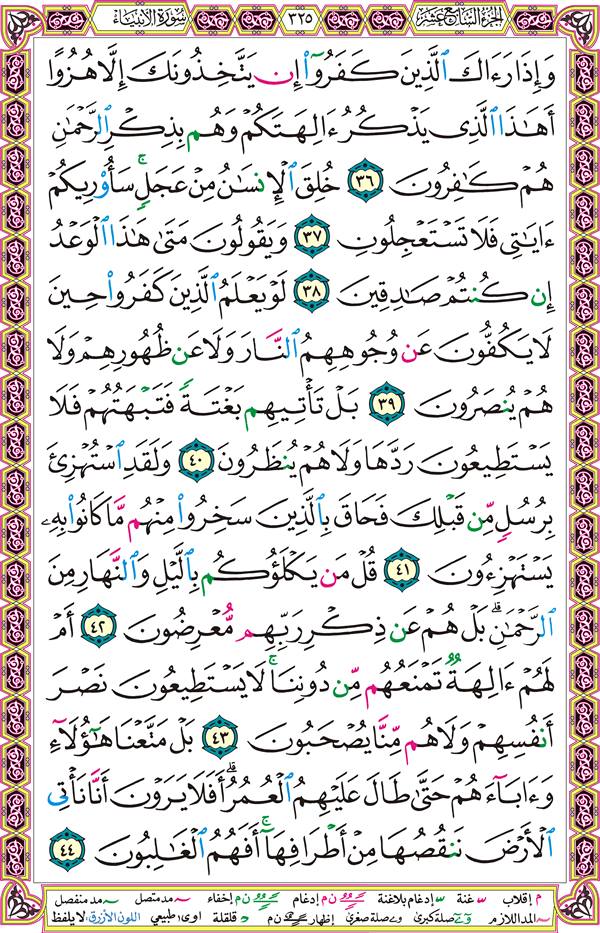 سورة الأنبياء ٣٢٥ الجزء السابع عشر
وَإِذَا رَءَاكَ ٱلَّذِينَ كَفَرُوٓا۟ إِن يَتَّخِذُونَكَ إِلَّا هُزُوًا
أَهَٰذَا ٱلَّذِى يَذْكُرُ ءَالِهَتَكُمْ وَهُم بِذِكْرِ ٱلرَّحْمَٰنِ
هُمْ كَٰفِرُونَ ٣٦ خُلِقَ ٱلْإِنسَٰنُ مِنْ عَجَلٍ ۚ سَأُو۟رِيكُمْ
ءَايَٰتِى فَلَا تَسْتَعْجِلُونِ ٣٧ وَيَقُولُونَ مَتَىٰ هَٰذَا ٱلْوَعْدُ
إِن كُنتُمْ صَٰدِقِينَ ٣٨ لَوْ يَعْلَمُ ٱلَّذِينَ كَفَرُوا۟ حِينَ
لَا يَكُفُّونَ عَن وُجُوهِهِمُ ٱلنَّارَ وَلَا عَن ظُهُورِهِمْ وَلَا
هُمْ يُنصَرُونَ ٣٩ بَلْ تَأْتِيهِم بَغْتَةً فَتَبْهَتُهُمْ فَلَا
يَسْتَطِيعُونَ رَدَّهَا وَلَا هُمْ يُنظَرُونَ ٤٠ وَلَقَدِ ٱسْتُهْزِئَ
بِرُسُلٍ مِّن قَبْلِكَ فَحَاقَ بِٱلَّذِينَ سَخِرُوا۟ مِنْهُم مَّا كَانُوا۟ بِهِۦ
يَسْتَهْزِءُونَ ٤١ قُلْ مَن يَكْلَؤُكُم بِٱلَّيْلِ وَٱلنَّهَارِ مِنَ
ٱلرَّحْمَٰنِ ۗ بَلْ هُمْ عَن ذِكْرِ رَبِّهِم مُّعْرِضُونَ ٤٢ أَمْ
لَهُمْ ءَالِهَةٌ تَمْنَعُهُم مِّن دُونِنَا ۚ لَا يَسْتَطِيعُونَ نَصْرَ
أَنفُسِهِمْ وَلَا هُم مِّنَّا يُصْحَبُونَ ٤٣ بَلْ مَتَّعْنَا هَٰٓؤُلَآءِ
وَءَابَآءَهُمْ حَتَّىٰ طَالَ عَلَيْهِمُ ٱلْعُمُرُ ۗ أَفَلَا يَرَوْنَ أَنَّا نَأْتِى
ٱلْأَرْضَ نَنقُصُهَا مِنْ أَطْرَافِهَآ ۚ أَفَهُمُ ٱلْغَٰلِبُونَ ٤٤
م إقلاب غنة إدغام بلاغنة ن م إدغام ن م إخفاء مد متصل مد منفصل
المد اللازم صلة كبرى صلة صغرى إظهار ن م قلقلة اوى طبيعي اللون الأزرق: لا يلفظ